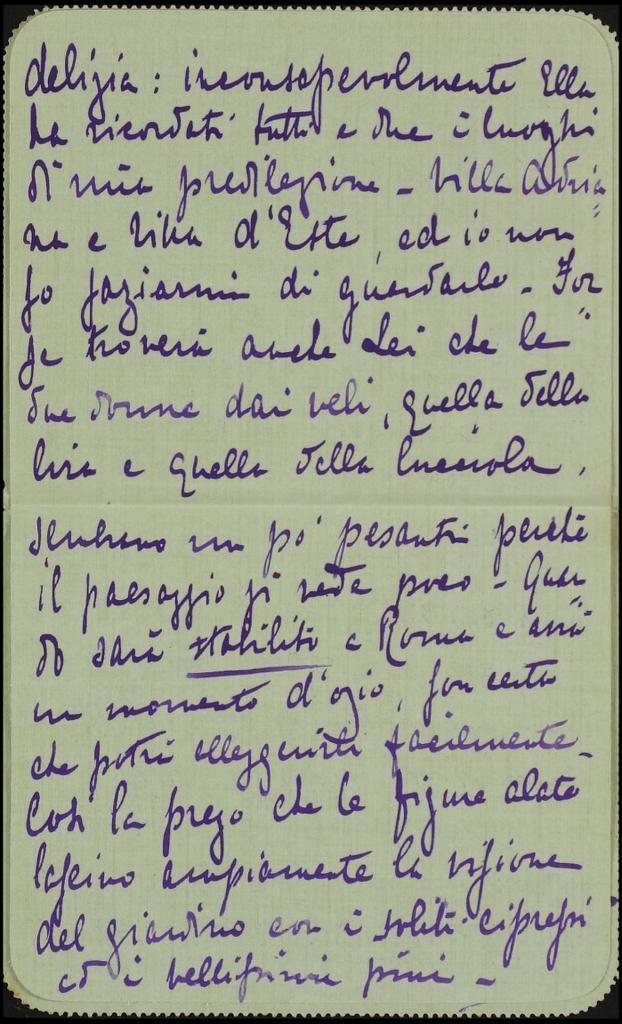 delizia: inconsapevolmente Ella
ha ricordati tutti e due i luoghi
di mia predilezione - Villa Adria=
na e Villa d'Este, ed io non
so saziarmi di guardarle - For=
se troverà anche Lei che le
due donne dai veli, quella della
lira e quella della lucciola,
sembrano un po' pesanti perchè
il paesaggio si vede poco - Quan=
do sarà stabilito a Roma e avrà
un momento d'ozio, son certa
che potrà alleggerirle facilmente -
Così la prego che le figure alate
lascino ampiamente la visione
del giardino con i soliti cipressi
ed i bellissimi pini -